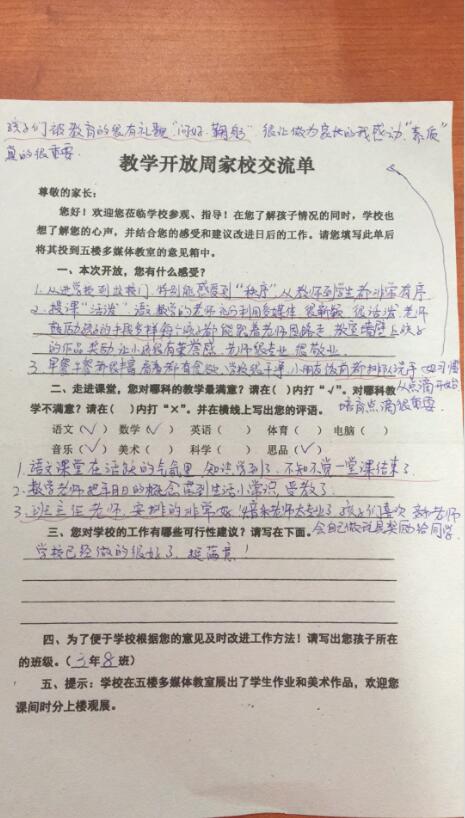 孩子们被教育的很有礼貌"问好.鞠躬"很让做为家长的我感动"素质"
真的很重要.
教学开放周家校交流单
尊敬的家长:
您好!欢迎您莅临学校参观、指导!在您了解孩子情况的同时,学校也
想了解您的心声,并结合您的感受和建议改进日后的工作。请您填写此单后
将其投到五楼多媒体教室的意见箱中。
一、本次开放,您有什么感受?
1.从进学校到放校门,特别能感受到"秩序"从教师到学生都非常有序
2.授课"活泼"语数学的老师充分利用多媒体 很新颖 很活泼.老师
鼓励孩子的手段多样每个孩子都能跟着老师思路走 教室墙壁上孩子
的作品奖励让小孩很有荣誉感.老师很专业 很敬业.
3.早餐午餐都很棒 看着都有食欲.学校很干净.小朋友饭前都排队洗手
从点滴开始
培育点滴很重要.
二、走进课堂,您对哪科的教学最满意?请在( )内打"√"。对哪科教
学不满意?请在( )内打"×"。并在横线上写出您的评语。
语文(√) 数学(√) 英语( ) 体育( ) 电脑( )
音乐(√) 美术( ) 科学( ) 思品(√)
1.语文课堂在活跃的气氛里 知识学到了.不知不觉一堂课结束了.
2.数学老师把年月日的概念 带到生活小常识.受教了.
3.班主任老师.安排的非常好 音乐老师太专业了 孩子们喜欢
会自己做玩具奖励给同学.
三、您对学校的工作有哪些可行性建议?请写在下面。
学校已经做的很好了.挺满意!
四、为了便于学校根据您的意见及时改进工作方法!请写出您孩子所在
的班级。(3年8班)
五、提示:学校在五楼多媒体教室展出了学生作业和美术作品,欢迎您
课间时分上楼观展。